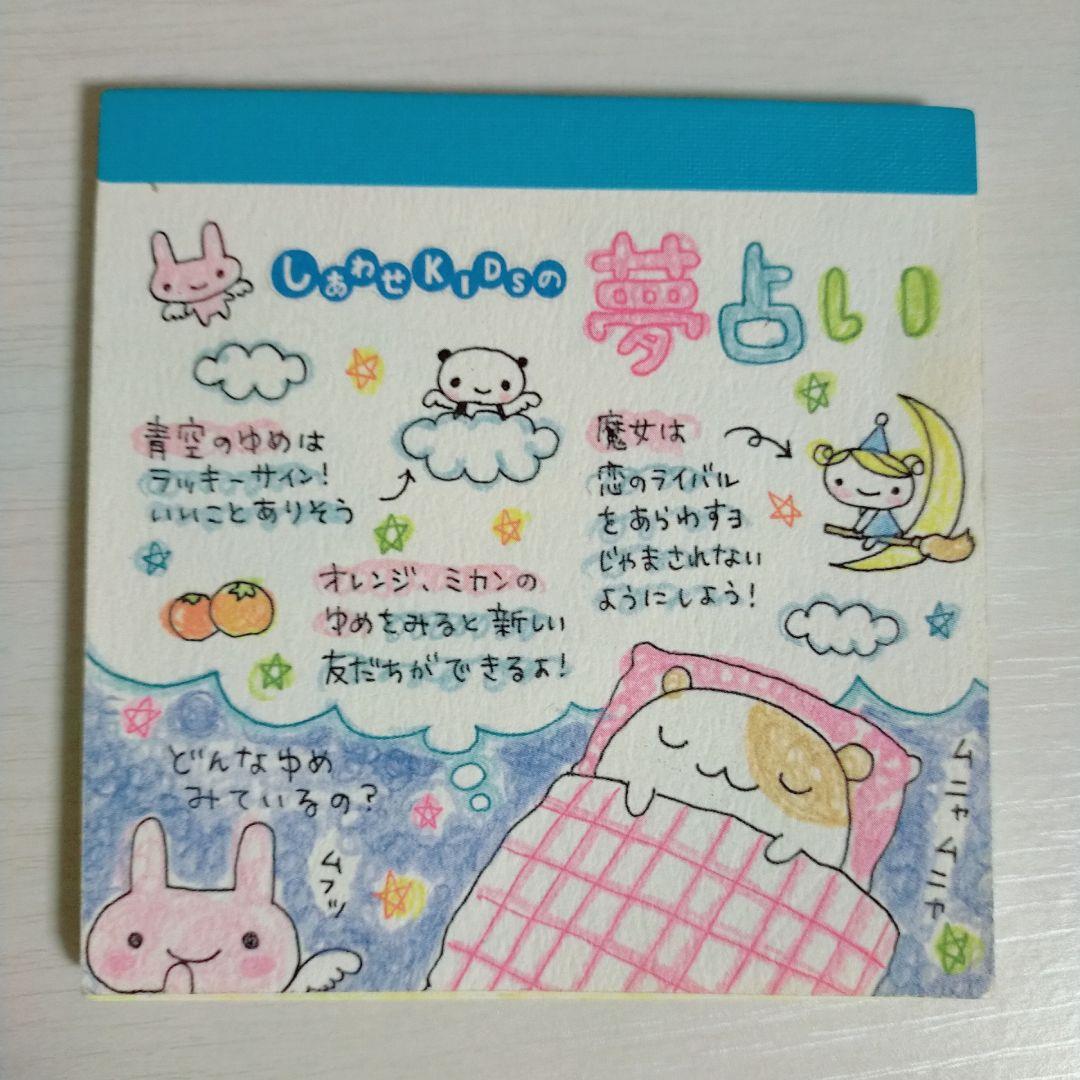 しあわせKIDSの夢占い
青空のゆめは
ラッキーサイン!
いいことありそう
魔女は
恋のライバル
をあらわすヨ
じゃまされない
ようにしよう!
オレンジ、ミカンの
ゆめをみると新しい
友だちができるよ!
どんなゆめ
みているの?
ムフッ
ムニャムニャ